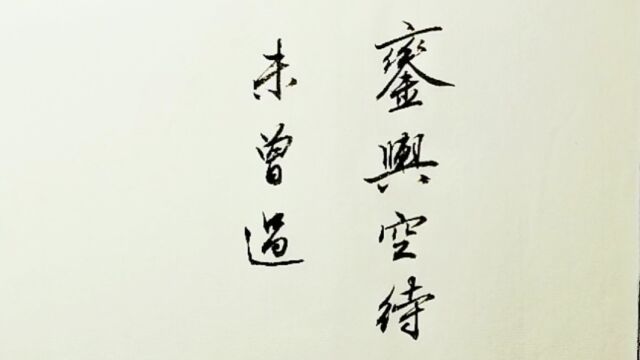 鑾輿空待
未曾過